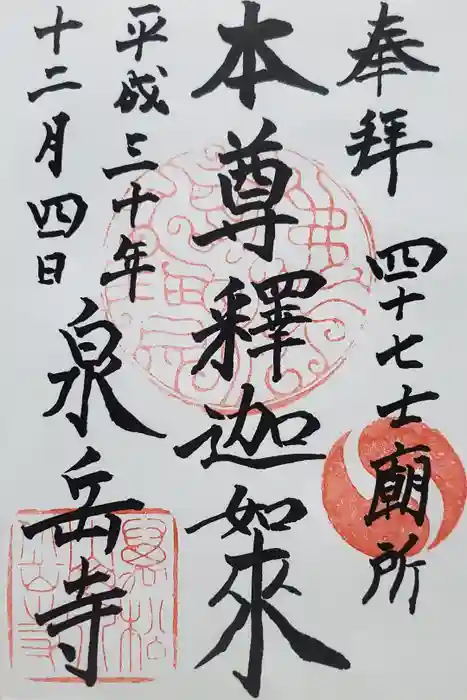 奉拝 四十七士廟所
本尊釋迦如來
泉岳寺
平成三十年
十二月四日